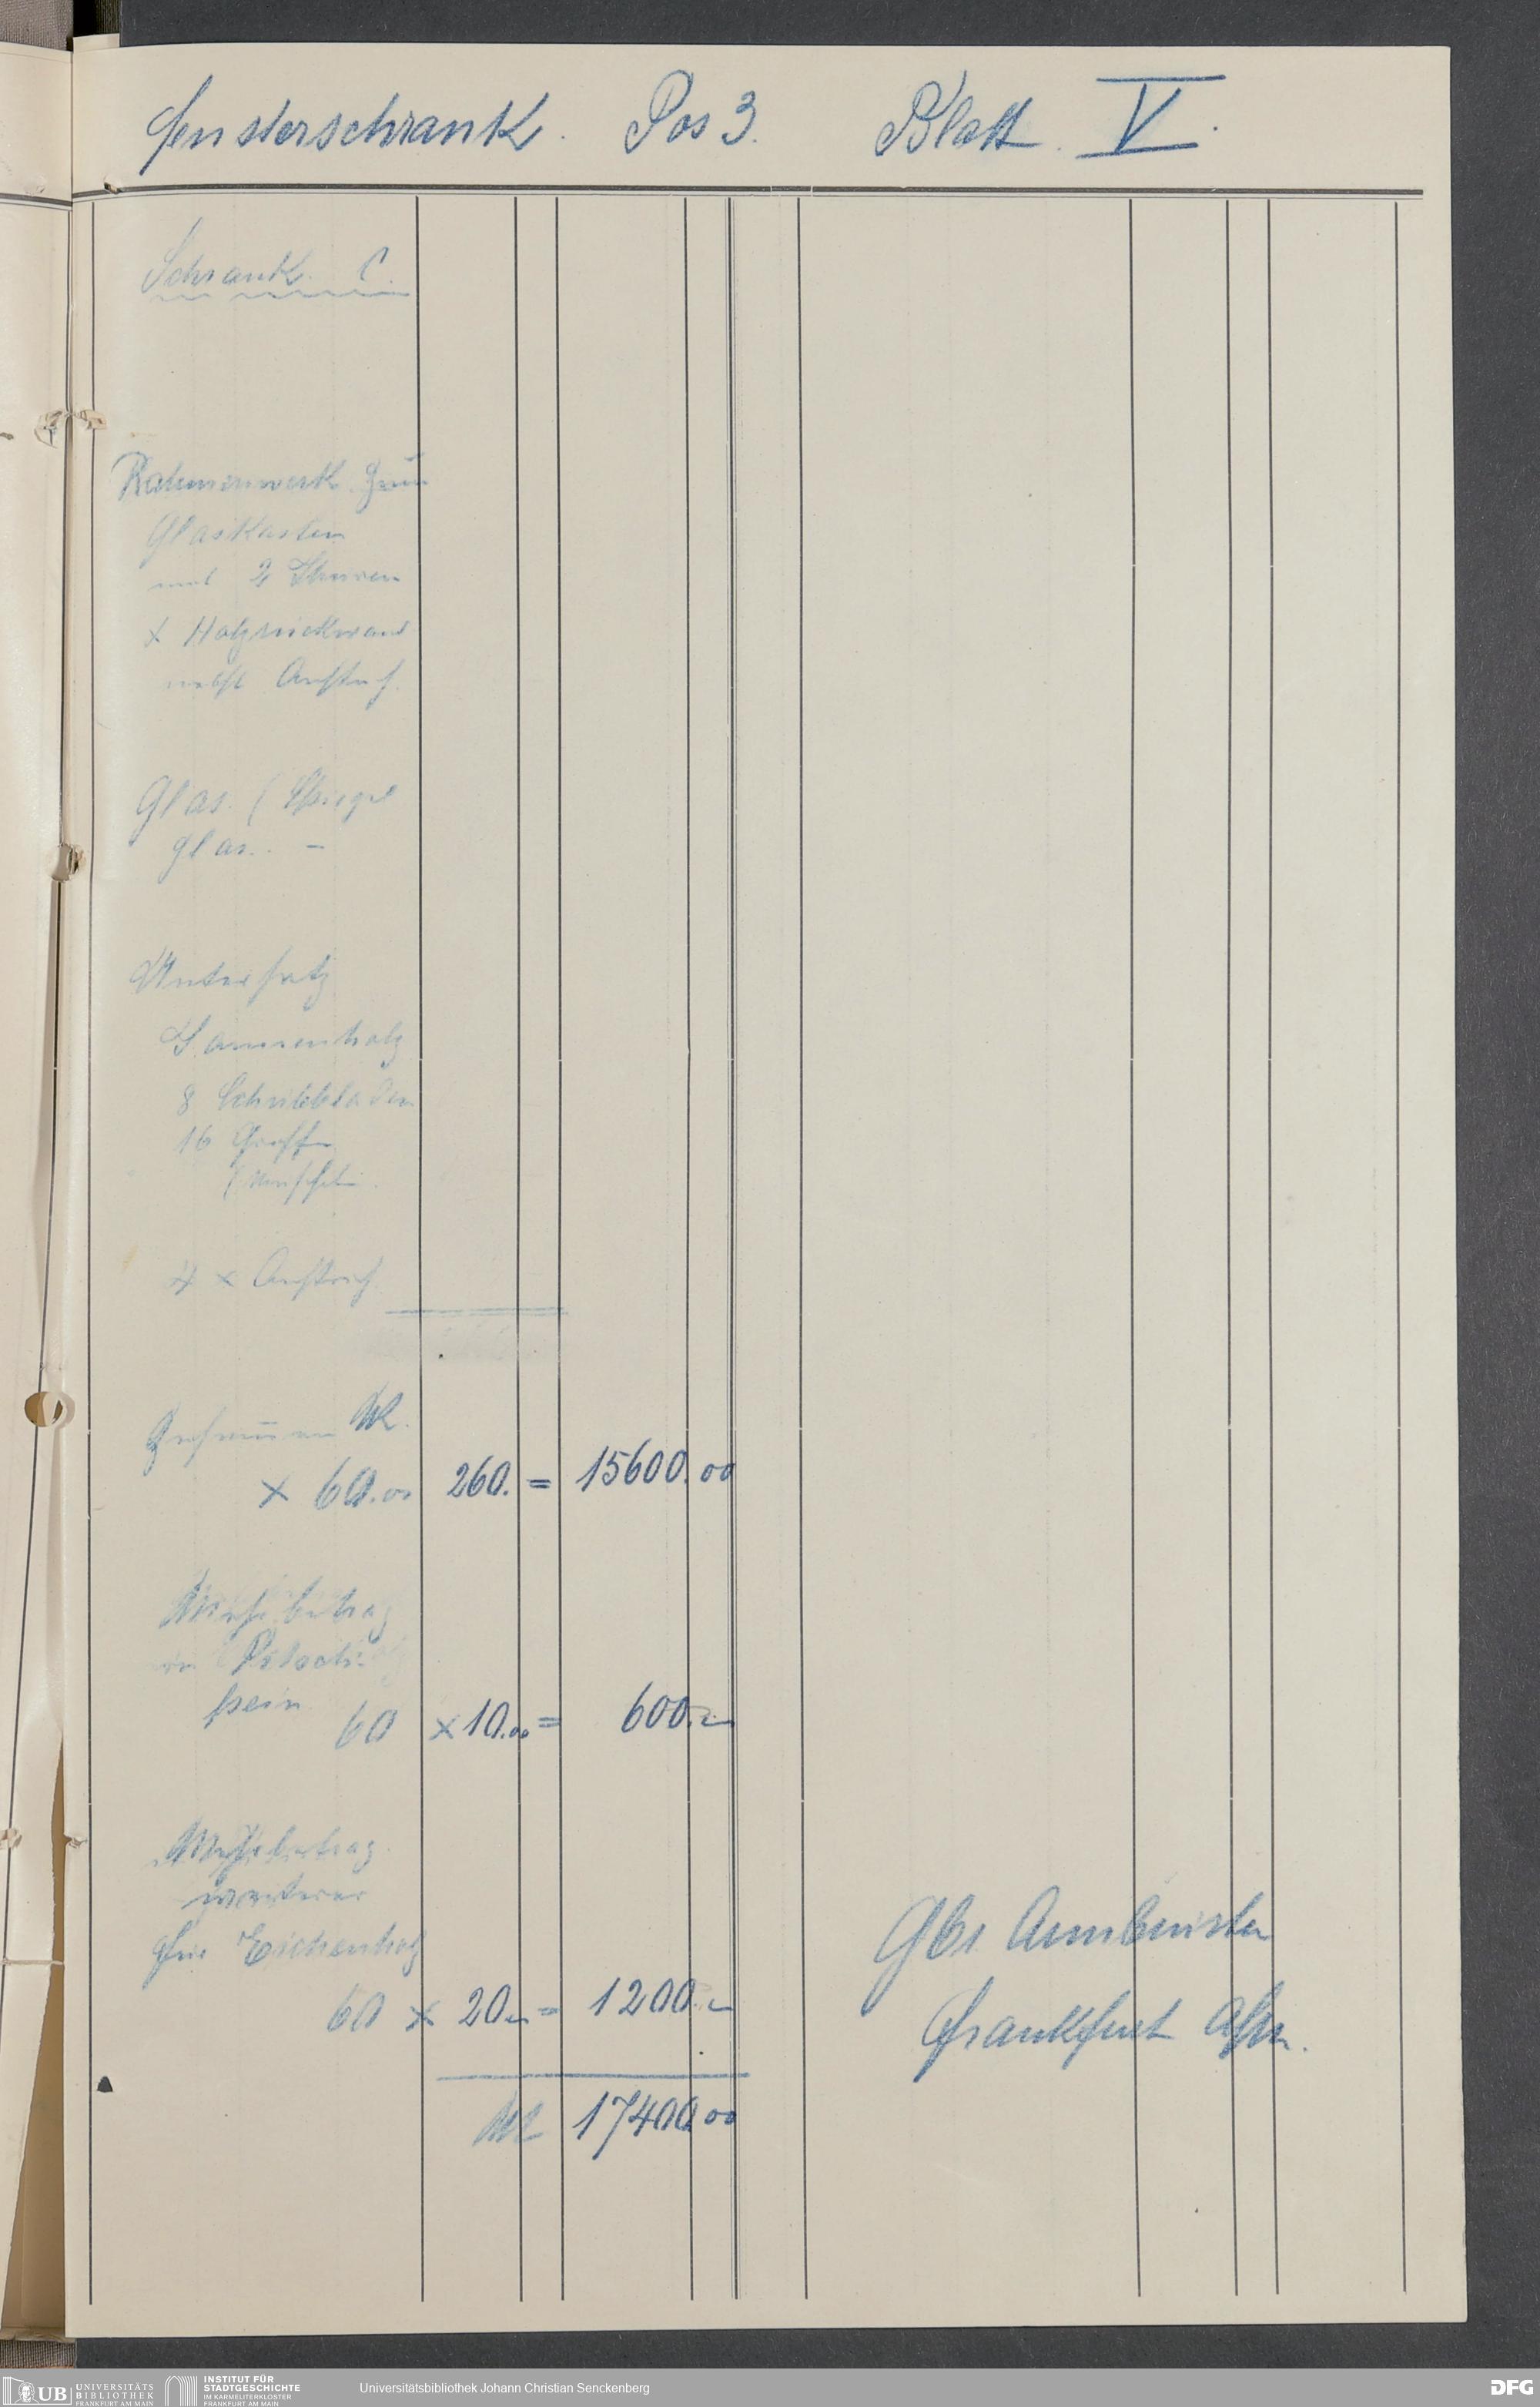 Fensterschrank. Pos 3. Blatt. V.
Schrank. C.
Rahmenwerk zum
Glaskasten
und 2 Thüren
x Holzrückwand
nebst Anstrich.
Glas. (Spiegel
glas. -
Untersatz
Tannenholz
8 Schiebladen
16 Griffe
(Muscheln.
4 x Anstrich
Zusammen M.
x 60.00 260. = 15600.00
Mehrbetrag
in Pitsch-
pein
60 x 10.00 = 600.-
Mehrbetrag
weiterer
für Eichenholz
60 x 20.- = 1200.-
M 17400.00
Gbr Armbrüster
Frankfurt a/m.
UB UNIVERSITÄTS
BIBLIOTHEK
FRANKFURT AM MAIN
INSTITUT FÜR
STADTGESCHICHTE
IM KARMELITERKLOSTER
FRANKFURT AM MAIN
Universitätsbibliothek Johann Christian Senckenberg
DFG